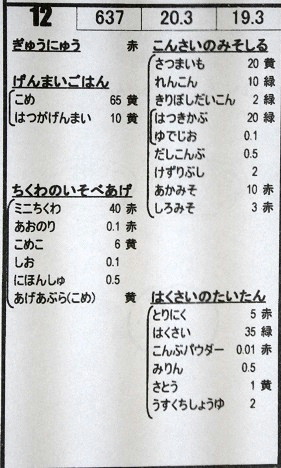 12 637 20.3 19.3
ぎゅうにゅう 赤
げんまいごはん
こめ 65 黄
はつがげんまい 10 黄
ちくわのいそべあげ
ミニちくわ 40 赤
あおのり 0.1 赤
こめこ 6 黄
しお 0.1
にほんしゅ 0.5
あげあぶら(こめ) 黄
こんさいのみそしる
さつまいも 20 黄
れんこん 10 緑
きりぼしだいこん 2 緑
はつきかぶ 20 緑
ゆでじお 0.1
だしこんぶ 0.5
けずりぶし 2
あかみそ 10 赤
しろみそ 3 赤
はくさいのたいたん
とりにく 5 赤
はくさい 35 緑
こんぶパウダー 0.01 赤
みりん 0.5
さとう 1 黄
うすくちしょうゆ 2